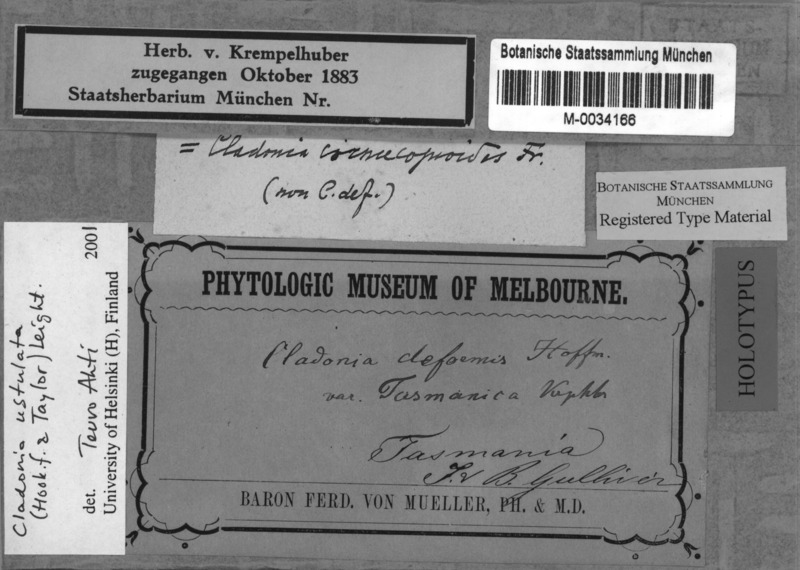 Herb. v. Krempelhuber
zugegangen Oktober 1883
Staatsherbarium München Nr.
Botanische Staatssammlung München
M-0034166
= Cladonia Fr.
(non C. def.)
BOTANISCHE STAATSSAMMLUNG
MÜNCHEN
Registered Type Material
Cladonia ustulata
(Hook.f. & Taylor) Leight.
det. Teuvo Ahti 2001
University of Helsinki (H), Finland
PHYTOLOGIC MUSEUM OF MELBOURNE.
Cladonia deformis Hoffm.
var. Tasmanica Kphb
Tasmania
B. Gulliver
BARON FERD. VON MUELLER, PH. & M.D.
HOLOTYPUS